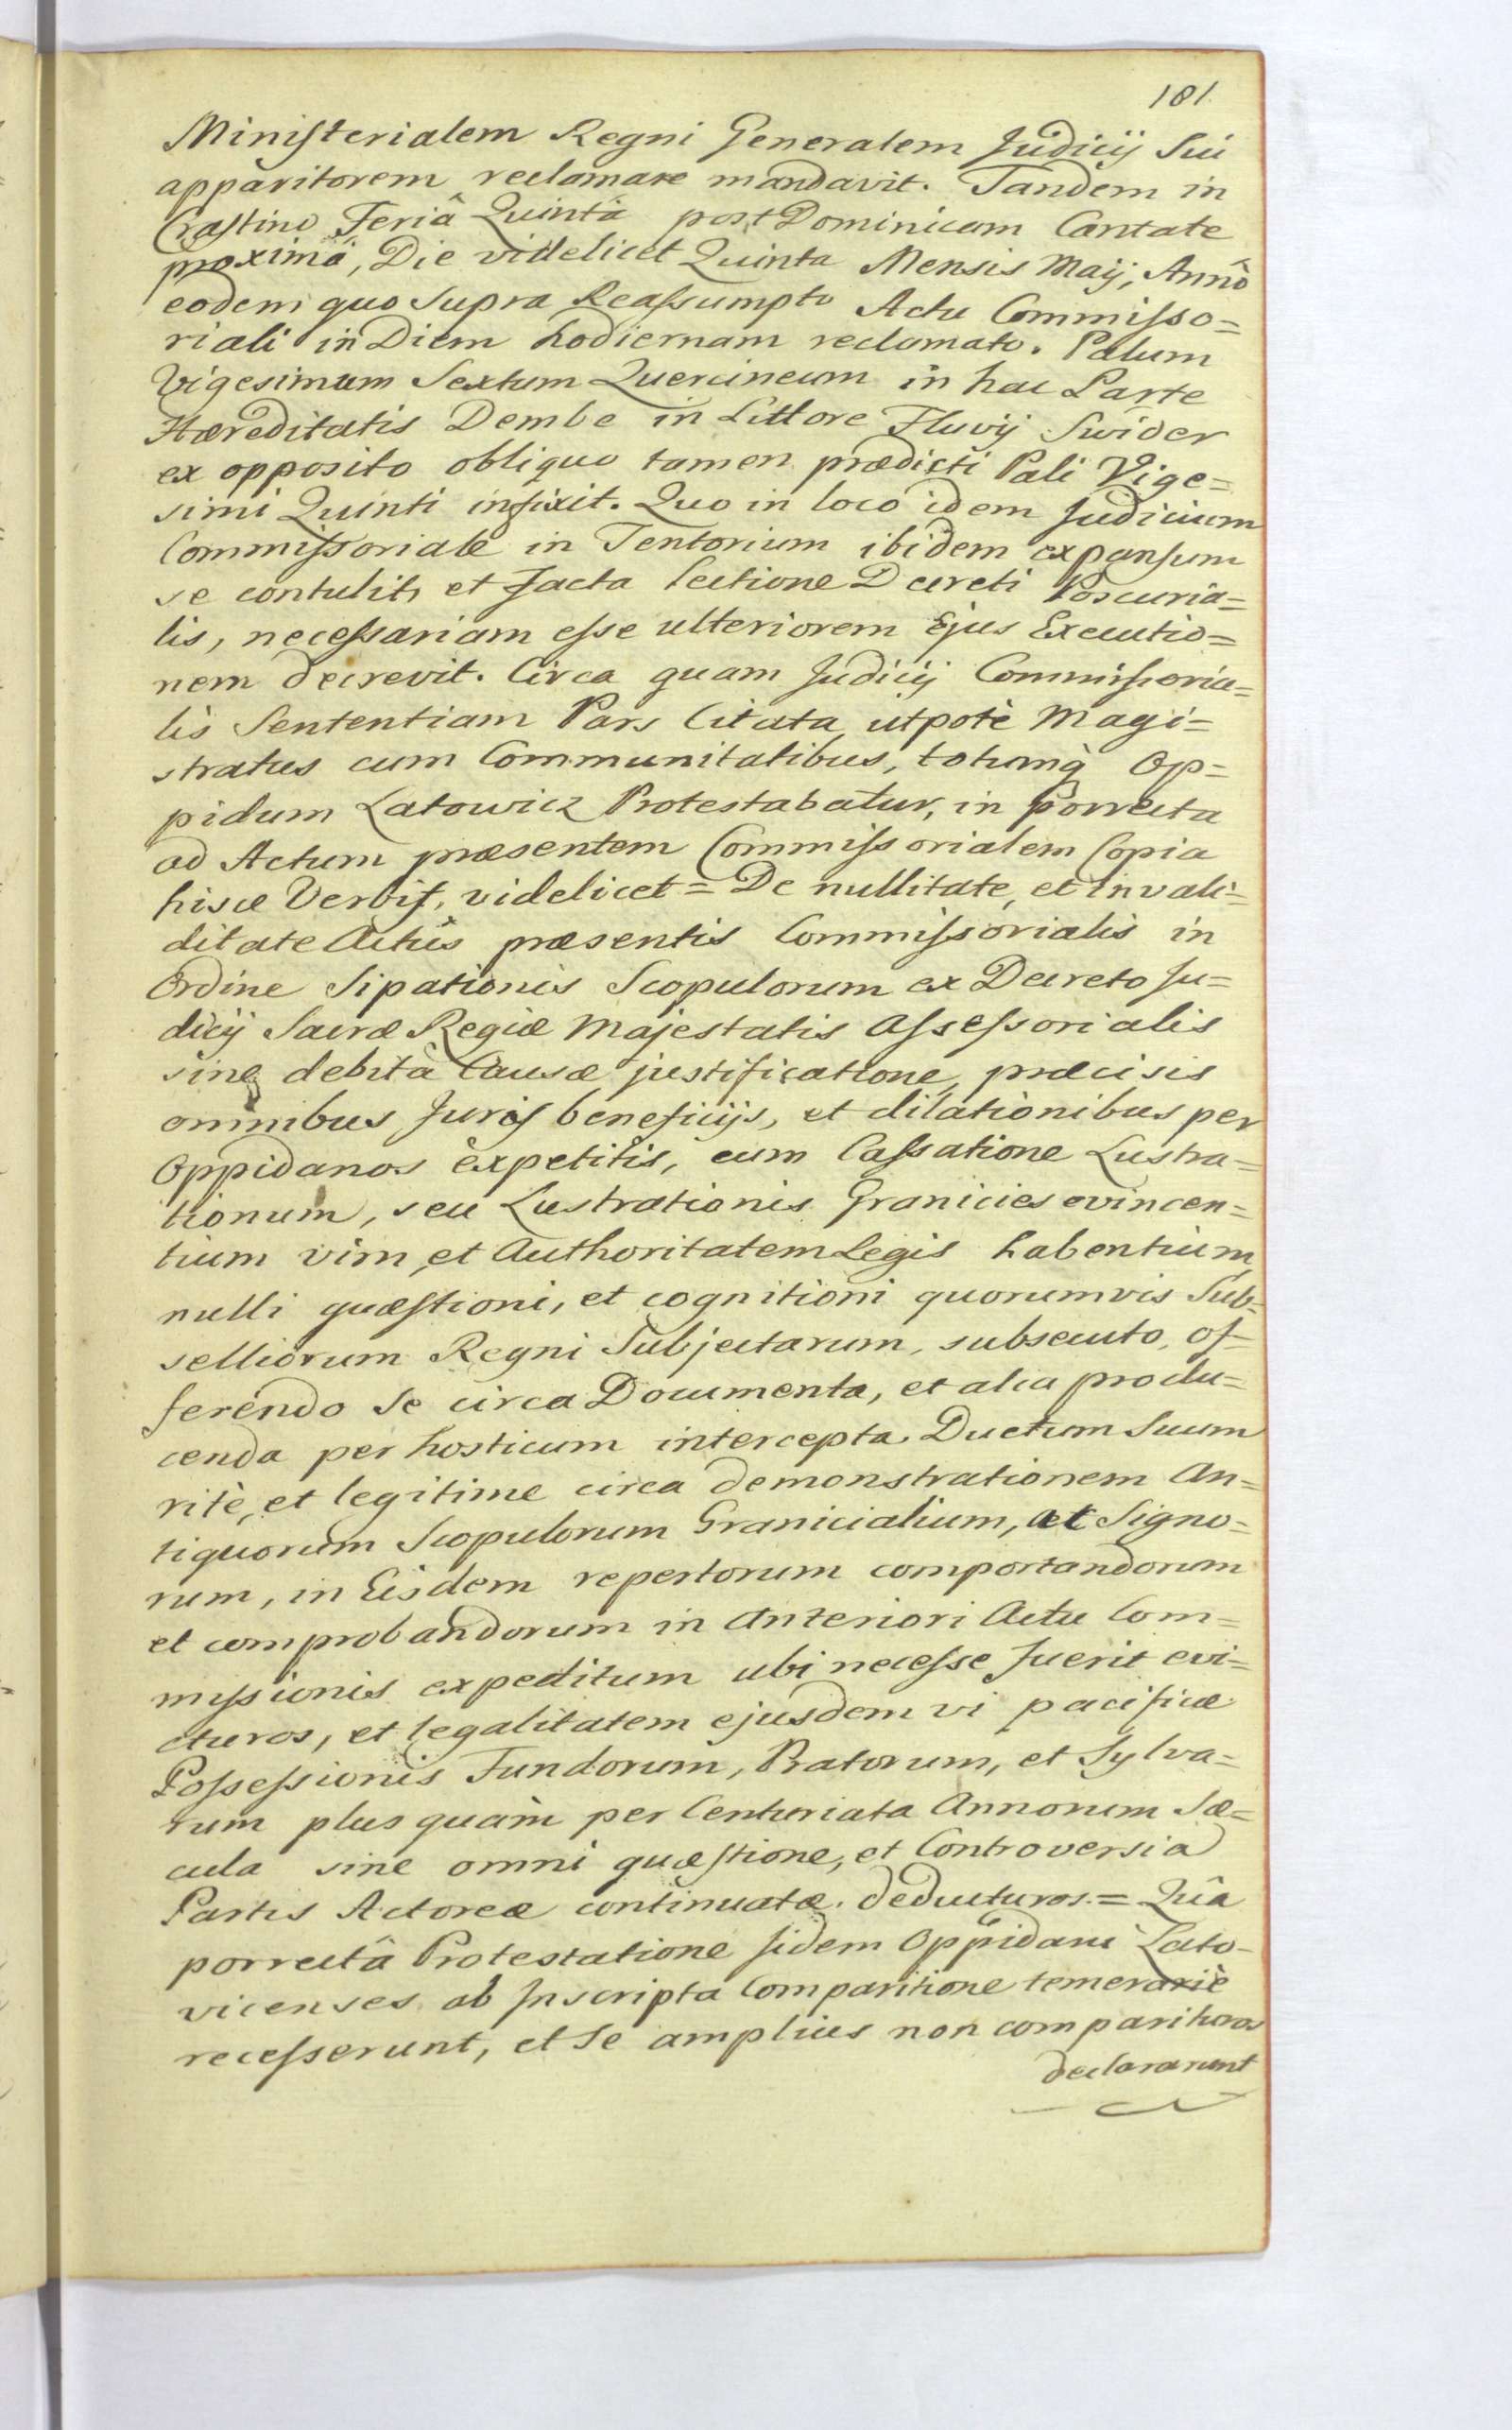 181.
Ministerialem Regni Generalem Judicij Sui
apparitorem reclamare mandavit. Tandem in
Crastino Feriâ Quintâ post Dominicam Cantate
proximâ, Die videlicet Quinta Mensis Maij, Annô
eodem quo Supra Reassumpto Actu Commisso=
riali in Diem hodiernam reclamato. Palum
Vigesimum Sextum Quercineum in hac Parte
Hæreditatis Dembe in Littore Fluvij Swider
ex opposito obliquo tamen prædicti Pali Vige=
simi Quinti infixit. Quo in loco idem Judicium
Commissoriale in Tentorium ibidem expansum
se contulit, et facta lectione Decreti Poscuria=
lis, necessariam esse ulteriorem Ejus Executio=
nem decrevit. Circa quam Judicij Commissoria=
lis Sententiam Pars Citata utpotè Magi=
stratus cum Communitatibus, totumq̀ Op=
pidum Latowicz Protestabatur, in porrecta
ad Actum præsentem Commissorialem Copia
hisce Verbis, videlicet = De nullitate, et invali=
ditate Actûs præsentis Commissorialis in
Ordine Sipationis Scopulorum ex Decreto Ju=
dicij Sacræ Regiæ Majestatis Assessorialis
sine debita Causæ justificatione, præcisis
omnibus Juris beneficijs, et dilationibus per
Oppidanos expetitis, cum Cassatione Lustra=
tionum, seu Lustrationis Granicies evincen=
tium vim, et Authoritatem Legis habentium,
nulli quæstioni, et cognitioni quorumvis Sub=
selliorum Regni Subjectarum, subsecuto, of=
ferendo Se circa Documenta, et alia produ=
cenda per hosticum intercepta Ductum Suum
ritè, et legitime circa demonstrationem An=
tiquorum Scopulorum Granicialium, et Signo=
rum, in Eisdem repertorum comportandorum
et comprobandorum in Anteriori Actu Com=
missionis expeditum ubi necesse fuerit evi=
cturos, et legalitatem ejusdem vi pacificæ
Possessionis Fundorum, Pratorum, et Sylva=
rum plus quàm per Centuriata Annorum Sæ=
cula sine omni quæstione, et Controversia
Partis Actoreæ continuatæ deducturos. = Quâ
porrectâ Protestatione fidem Oppidani Lato=
vicenses ab Inscripta Comparitione temerariè
recesserunt, et Se amplius non comparituros
declararunt